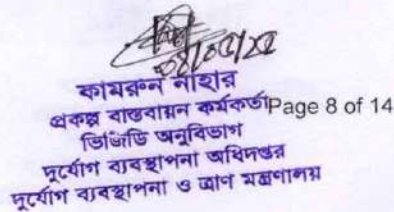 কামরুন নাহার
প্রকল্প বাস্তবায়ন কর্মকর্তা Page 8 of 14
ভিজিডি অনুবিভাগ
দুর্যোগ ব্যবস্থাপনা অধিদপ্তর
দুর্যোগ ব্যবস্থাপনা ও ত্রাণ মন্ত্রণালয়